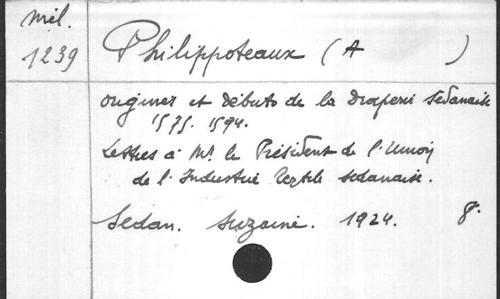 Mél.
1239
Philippoteaux (A )
origines et débuts de la draperie sedanaise
1575. 1594.
Lettres à Mr. le Président de l'Union
de l'Industrie Textile sedanaise.
Sedan. Suzaine. 1924. 8°.